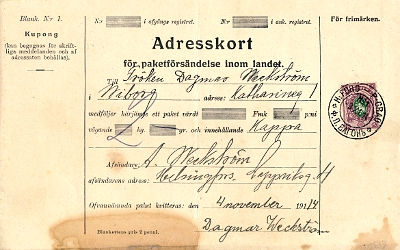 Blank. Nr 1.
Kupong
(kan begagnas för skrift-
liga meddelanden och af
adressaten behållas).
Nr i afgångs registret. Nr i ank. registret.
För frimärken.
Adresskort
för paketförsändelse inom landet.
Till Fröken Dagmar Weckström
i Wiborg adress: Katharineg 1
med följande härjämte ett paket värdt Fmk p:i
vägande 2 kg och innehållande Kappa
Afsändare: A. Weckström
afsändarens adress: Helsingfors,
Ofvannämnda paket kvitteras: den 4 november 1914
Dagmar Weckström
Blankettens pris 2 penni.